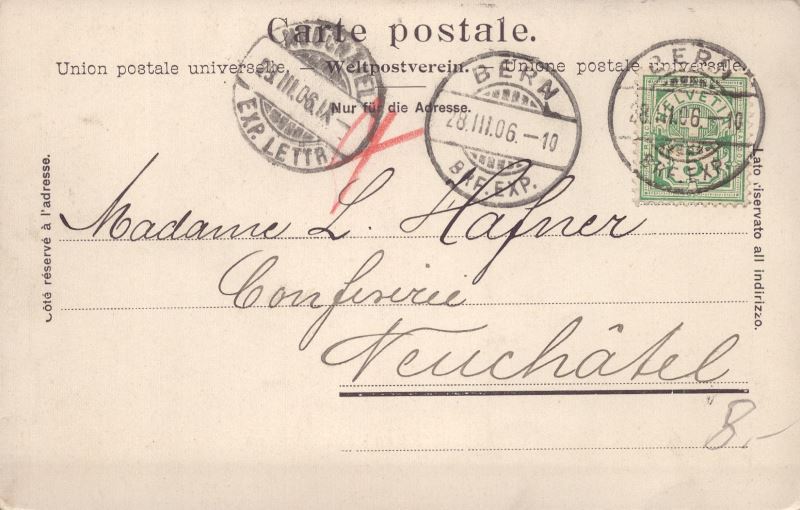 Carte postale.
Union postale universelle. — Weltpostverein. — Unione postale universale.
Nur für die Adresse.
Côté réservé à l'adresse.
Lato riservato all indirizzo.
NEUCHATEL
III.06.IX—
EXP. LETTR.
BERN
28.III.06.—10
BRF. EXP.
BERN
28.III.06.—10
BRF. EXP.
HELVETIA
5
Madame L. Hafner
Confiserie
Neuchâtel
8.-